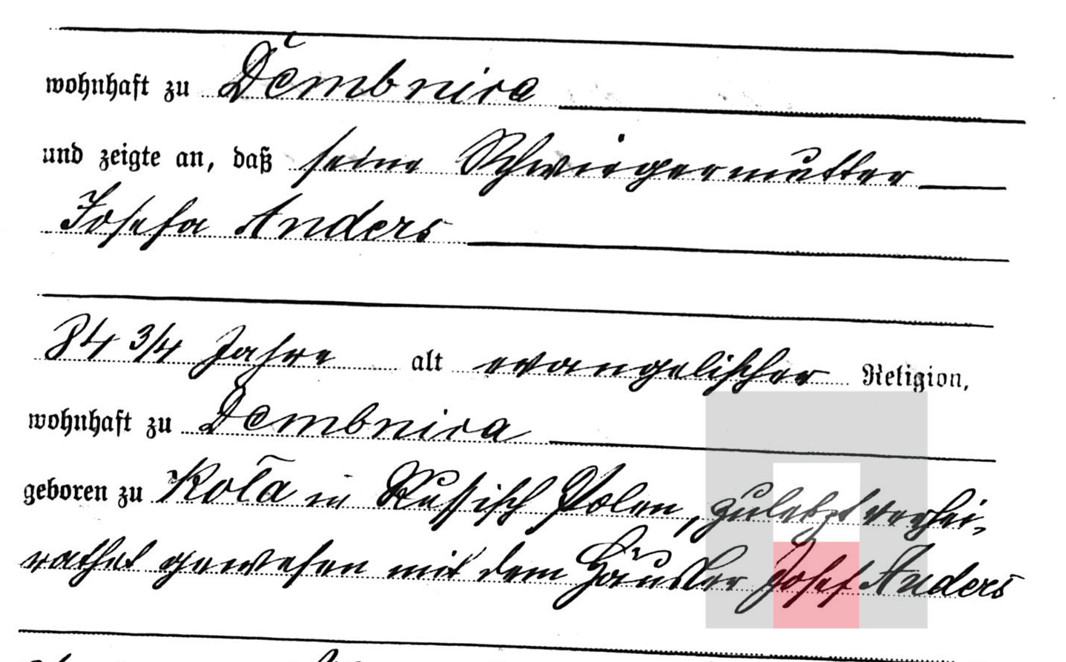 wohnhaft zu Dembnica
und zeigte an, daß seine Schwiegermutter
Josefa Anders
84 3/4 Jahre alt evangelischer Religion,
wohnhaft zu Dembnica
geboren zu Koła in Russisch Polen, zuletzt verhei-
rathet gewesen mit dem Häusler Josef Anders